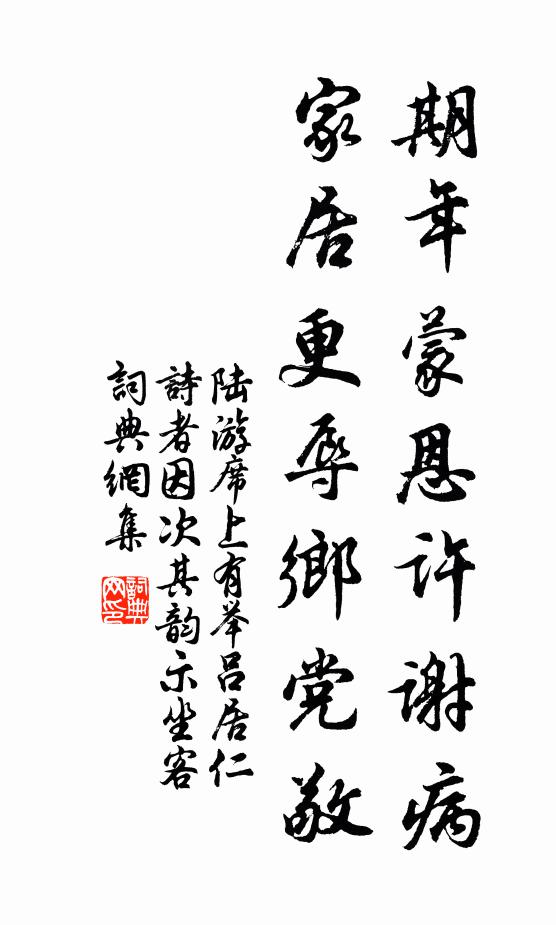 期年蒙恩許谢病
家居更辱鄉党敬
陆游席上有举吕居仁
詩者因次其韵示坐客
詞典網集
詞典